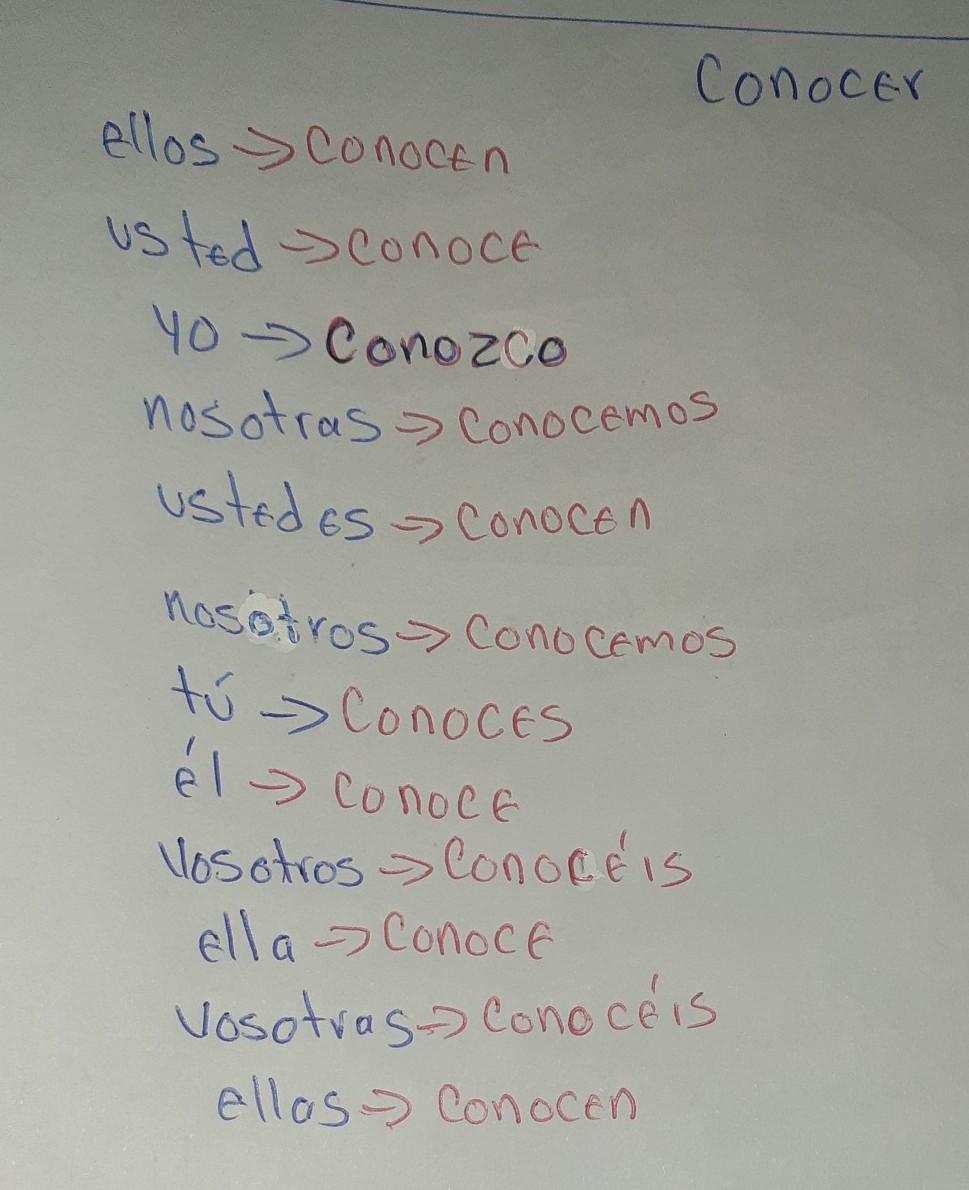 Conocer
ellos → conocen
usted → conoce
yo → Conozco
nosotras → Conocemos
ustedes → Conocen
nosotros → Conocemos
tú → Conoces
él → conoce
Vosotros → Conocéis
ella → Conoce
Vosotras → Conocéis
ellas → Conocen